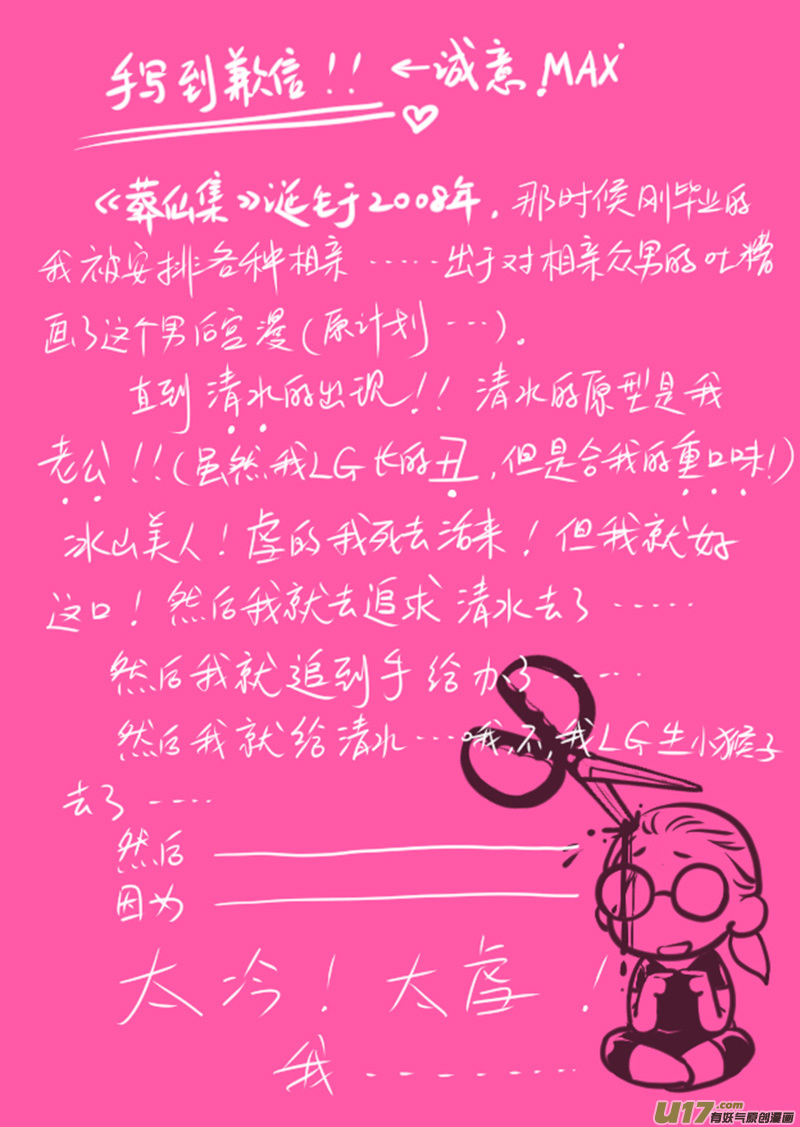 手写到歉信！！←诚意MAX
《葬仙集》诞生于2008年，那时候刚毕业的
我被安排各种相亲……出于对相亲众男的吐糟
画了这个男后宫漫(原计划…)。
直到清水的出现！！清水的原型是我
老公！！(虽然我LG长的丑，但是合我的重口味！)
冰山美人！虐的我死去活来！但我就好
这口！然后我就去追求清水去了……
然后我就追到手给办了……
然后我就给清水…哦，不，我LG生小猴子
去了……
然后————
因为————
太冷！太虐！
我………
U17.com
有妖气原创漫画